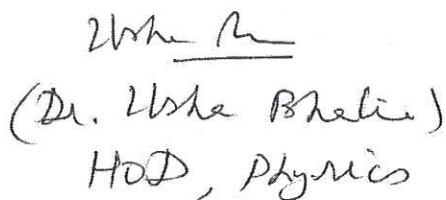 Usha
(Dr. Usha Bhatia)
HOD, Physics